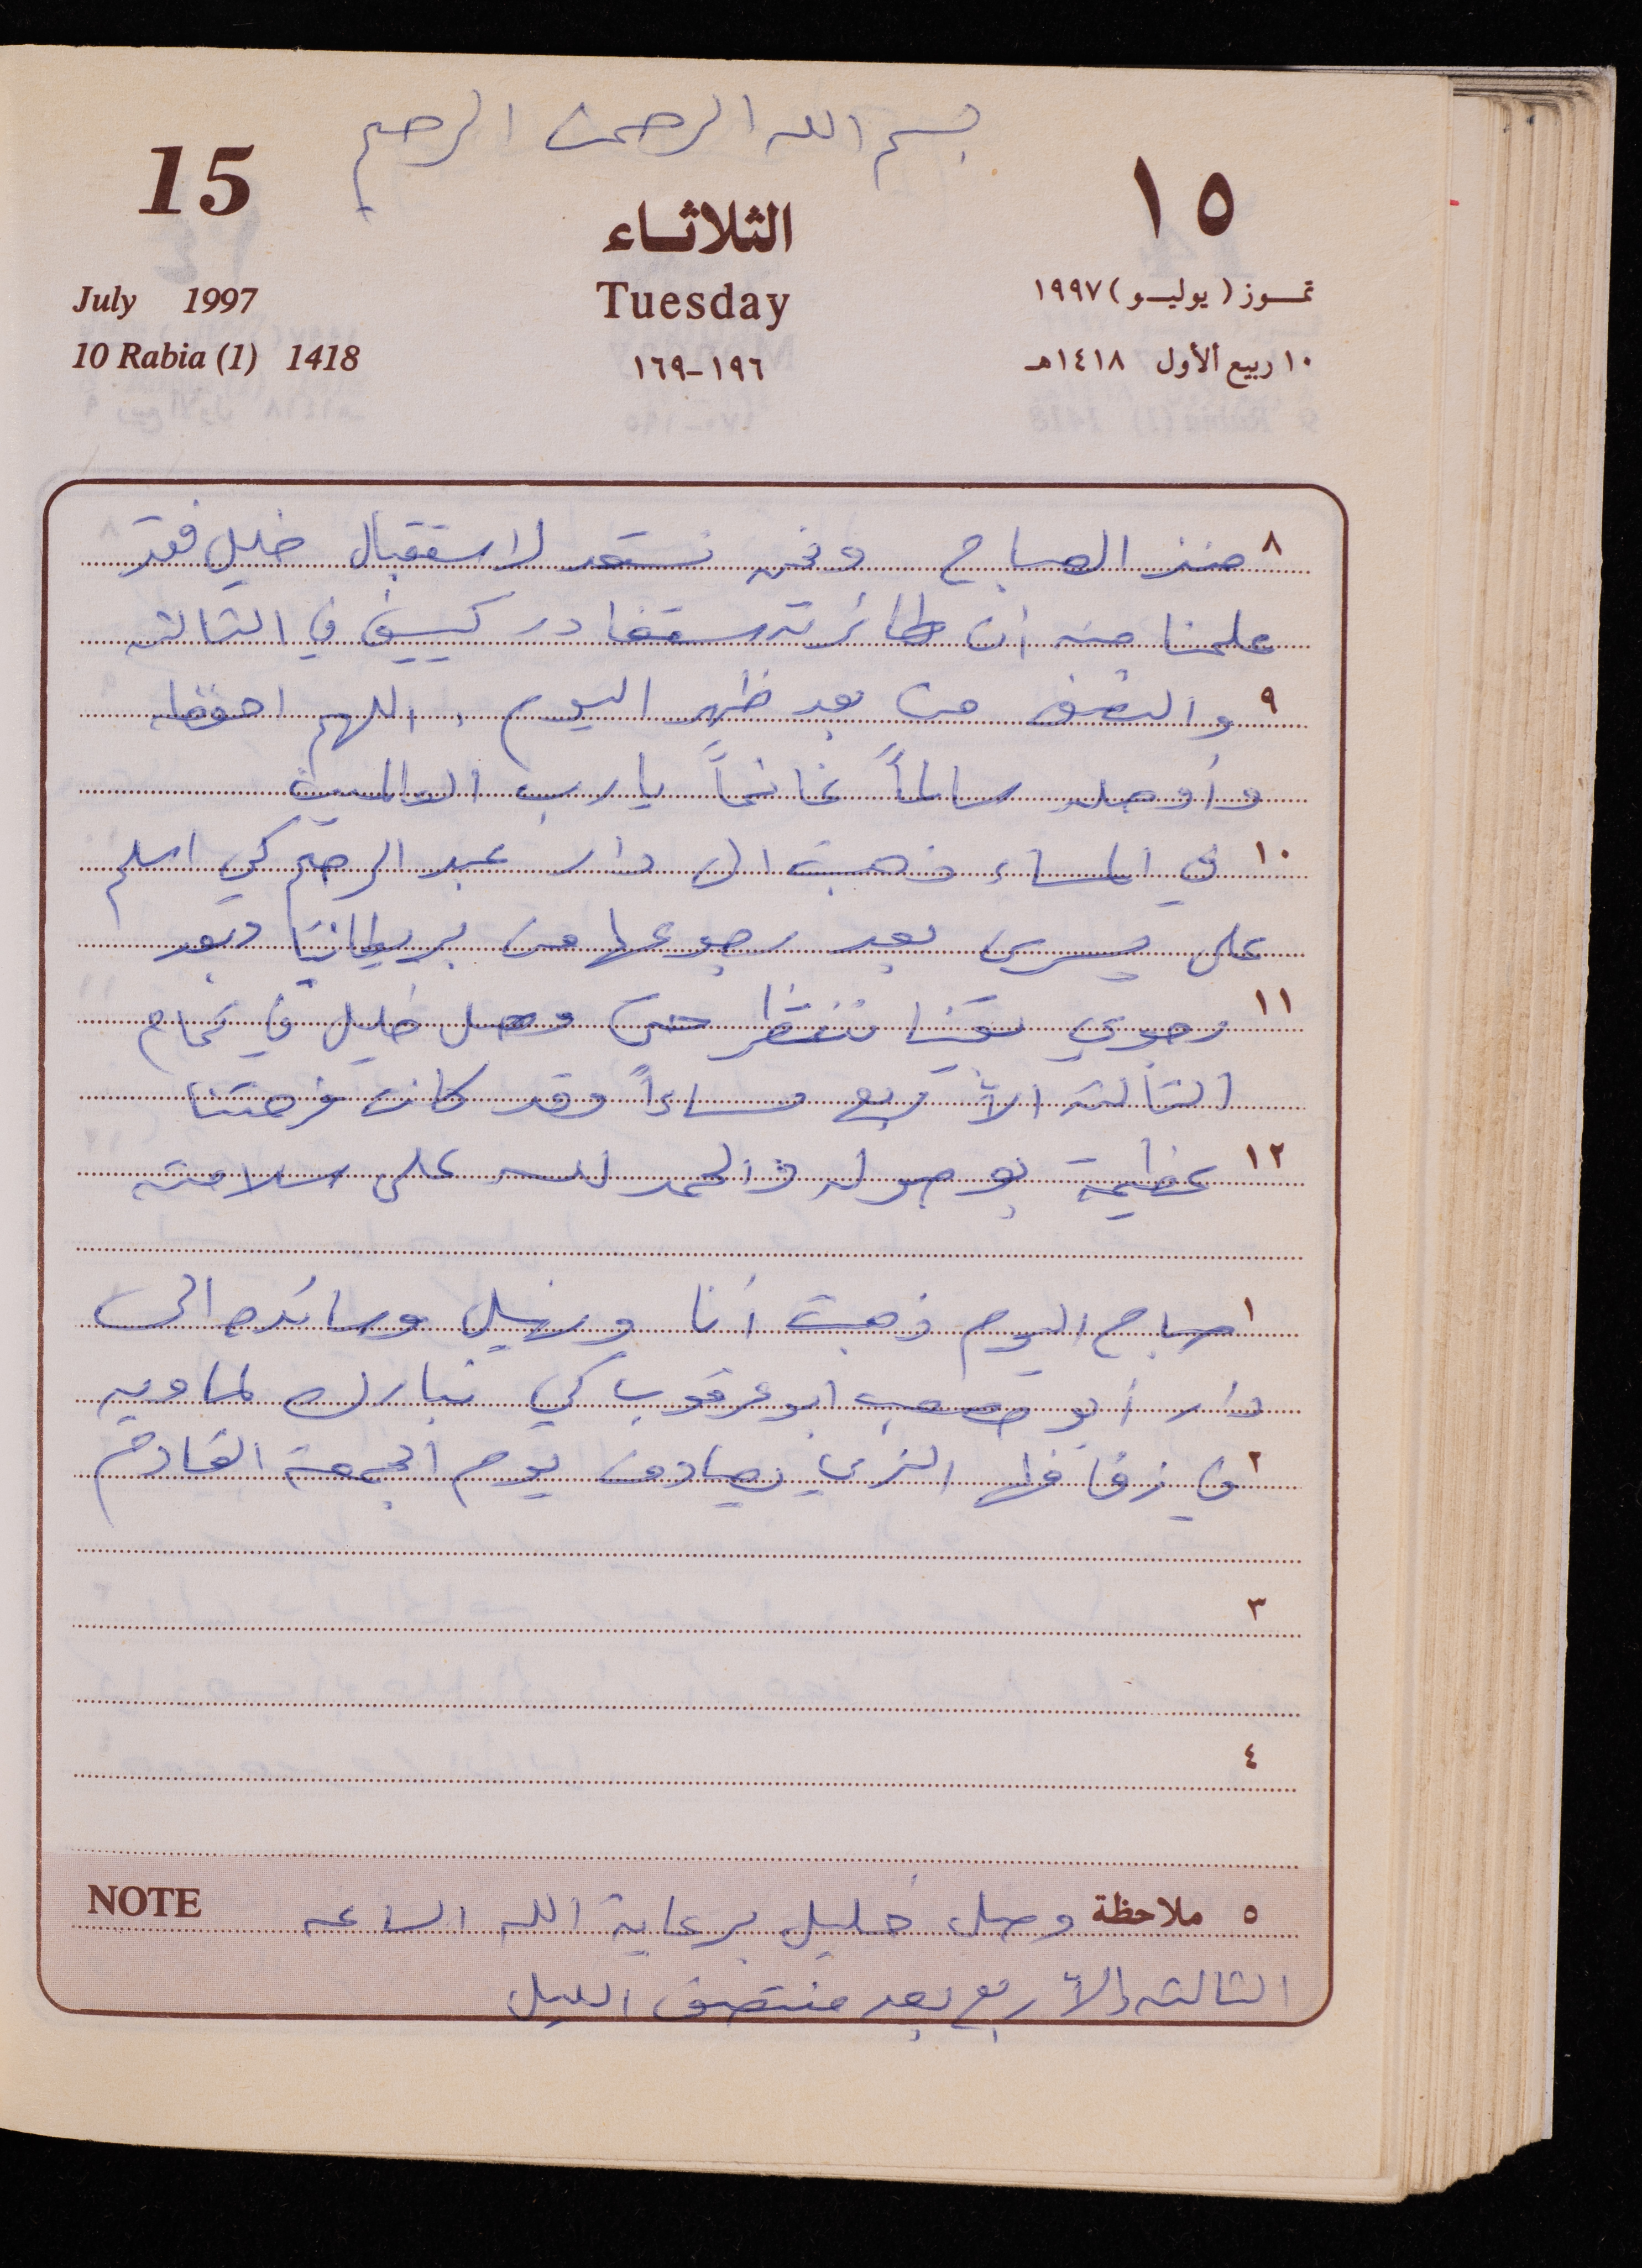 بسم الله الرحمن الرحيم
15
الثلاثاء
١٥
July 1997
Tuesday
تموز (يوليو) ١٩٩٧
10 Rabia (1) 1418
١٩٦-١٦٩
١٠ ربيع الأول ١٤١٨هـ
٨ منذ الصباح ونحن نستعد لاستقبال خليل فقد
علمنا منه أن طائرته ستغادر كييف في الثالثه
٩ والنصف من بعد ظهر اليوم، اللهم احفظه
وأوصله سالماً غانماً يا رب العالمين
١٠ في المساء ذهبت الى دار عبد الرحيم كي اسلم
على يسرى بعد رجوعها من بريطانيا وبعد
١١ رجوعي بقينا ننتظر حتى وصل خليل في تمام
الثالثه الا ربع مساءاً وقد كانت فرحتنا
١٢ عظيمة بوصوله والحمد لله على سلامته
١ صباح اليوم ذهبت أنا ونبيل وسائده الى
دار أبو مصعب ابو عرقوب كي نبارك لماويه
٢ في زفافها الذي يصادف يوم الجمعة القادم
٣
٤
٥ ملاحظة وصل خليل برعاية الله الساعه
NOTE
الثالثه إلا ربع بعد منتصف الليل